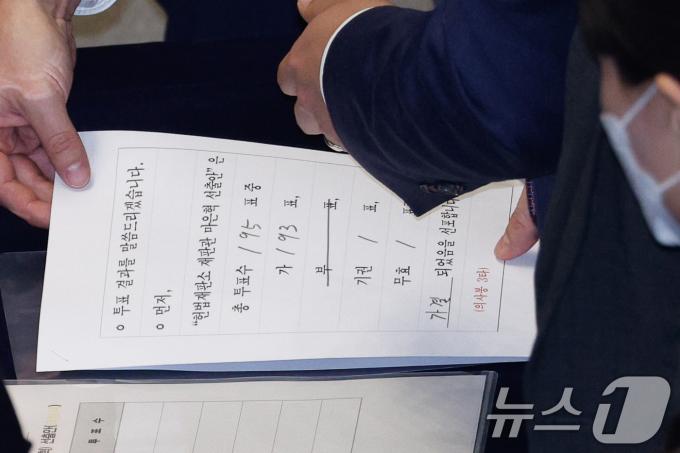 ㅇ 투표 결과를 말씀드리겠습니다.
ㅇ 먼저,
"헌법재판소 재판관 마은혁 선출안"은
총 투표수 195 표 중
가 193 표,
부 표,
기권 1 표,
무효 1 표
가결 되었음을 선포합니다
(의사봉 3타)
선출안(
투 표 수
뉴스1